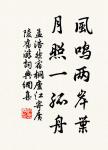 風鳴兩岸葉
月照一孤舟
孟浩然宿桐廬江寄廣
陵舊游詞典網集